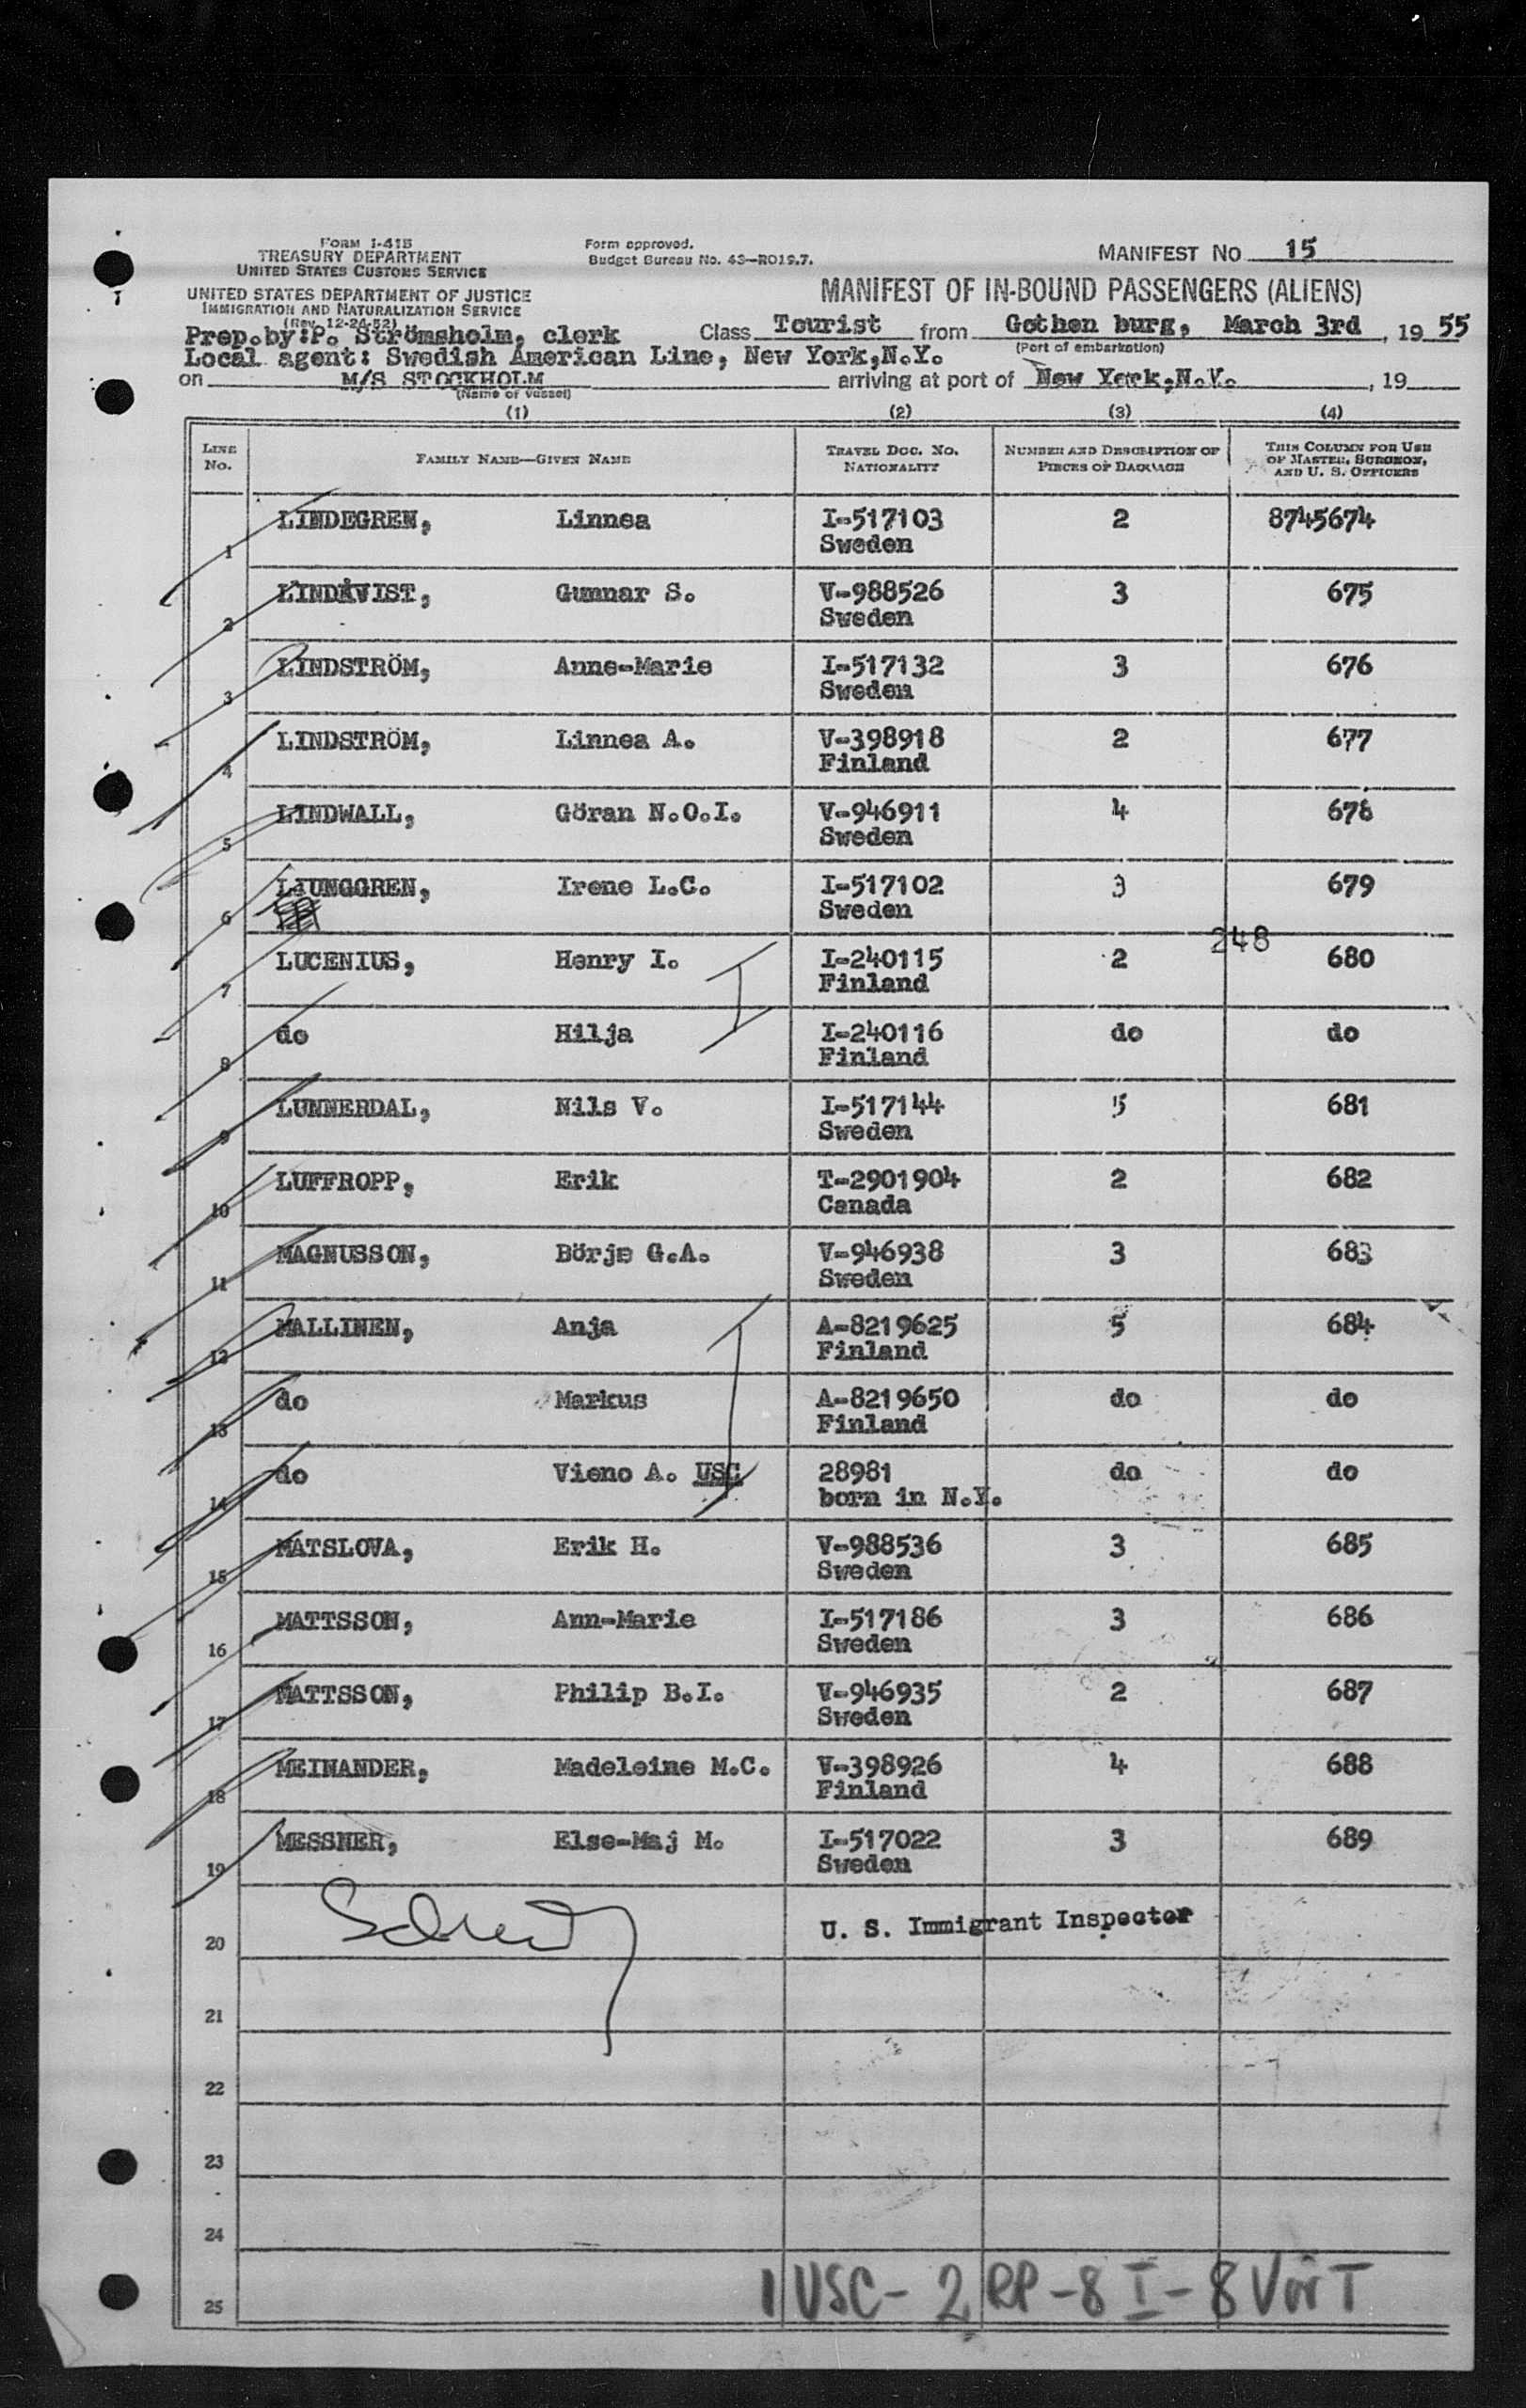 FORM I-415
TREASURY DEPARTMENT
UNITED STATES CUSTOMS SERVICE
UNITED STATES DEPARTMENT OF JUSTICE
IMMIGRATION AND NATURALIZATION SERVICE
(Rev. 12-24-52)
Form approved.
Budget Bureau No. 43—R019.7.
MANIFEST NO 15
MANIFEST OF IN-BOUND PASSENGERS (ALIENS)
Prep.by:P. Strömsholm, clerk Class Tourist from Gothen burg, March 3rd, 19 55
Local agent: Swedish American Line, New York,N.Y. (Port of embarkation)
on M/S STOCKHOLM arriving at port of New York,N.Y. , 19
(Name of vessel)
(1) (2) (3) (4)
LINE NO. FAMILY NAME—GIVEN NAME TRAVEL DOC. NO. NATIONALITY NUMBER AND DESCRIPTION OF PIECES OF BAGGAGE THIS COLUMN FOR USE OF MASTER, SURGEON, AND U. S. OFFICERS
1 LINDEGREN, Linnea I-517103 2 8745674
Sweden
2 LINDKVIST, Gunnar S. V-988526 3 675
Sweden
3 LINDSTRÖM, Anne-Marie I-517132 3 676
Sweden
4 LINDSTRÖM, Linnea A. V-398918 2 677
Finland
5 LINDWALL, Göran N.O.I. V-946911 4 678
Sweden
6 LJUNGGREN, Irene L.C. I-517102 3 679
Sweden
248
7 LUCENIUS, Henry I. I-240115 2 680
Finland
8 do Hilja I-240116 do do
Finland
9 LUNNERDAL, Nils V. I-517144 5 681
Sweden
10 LUFFROPP, Erik T-2901904 2 682
Canada
11 MAGNUSSON, Börje G.A. V-946938 3 683
Sweden
12 MALLINEN, Anja A-8219625 5 684
Finland
13 do Markus A-8219650 do do
Finland
14 do Vieno A. USC 28981 do do
born in N.Y.
15 MATSLOVA, Erik H. V-988536 3 685
Sweden
16 MATTSSON, Ann-Marie I-517186 3 686
Sweden
17 MATTSSON, Philip B.I. V-946935 2 687
Sweden
18 MEINANDER, Madeleine M.C. V-398926 4 688
Finland
19 MESSNER, Else-Maj M. I-517022 3 689
Sweden
20 U. S. Immigrant Inspector
21
22
23
24
25
1 USC - 2 RP - 8 I - 8 V or T